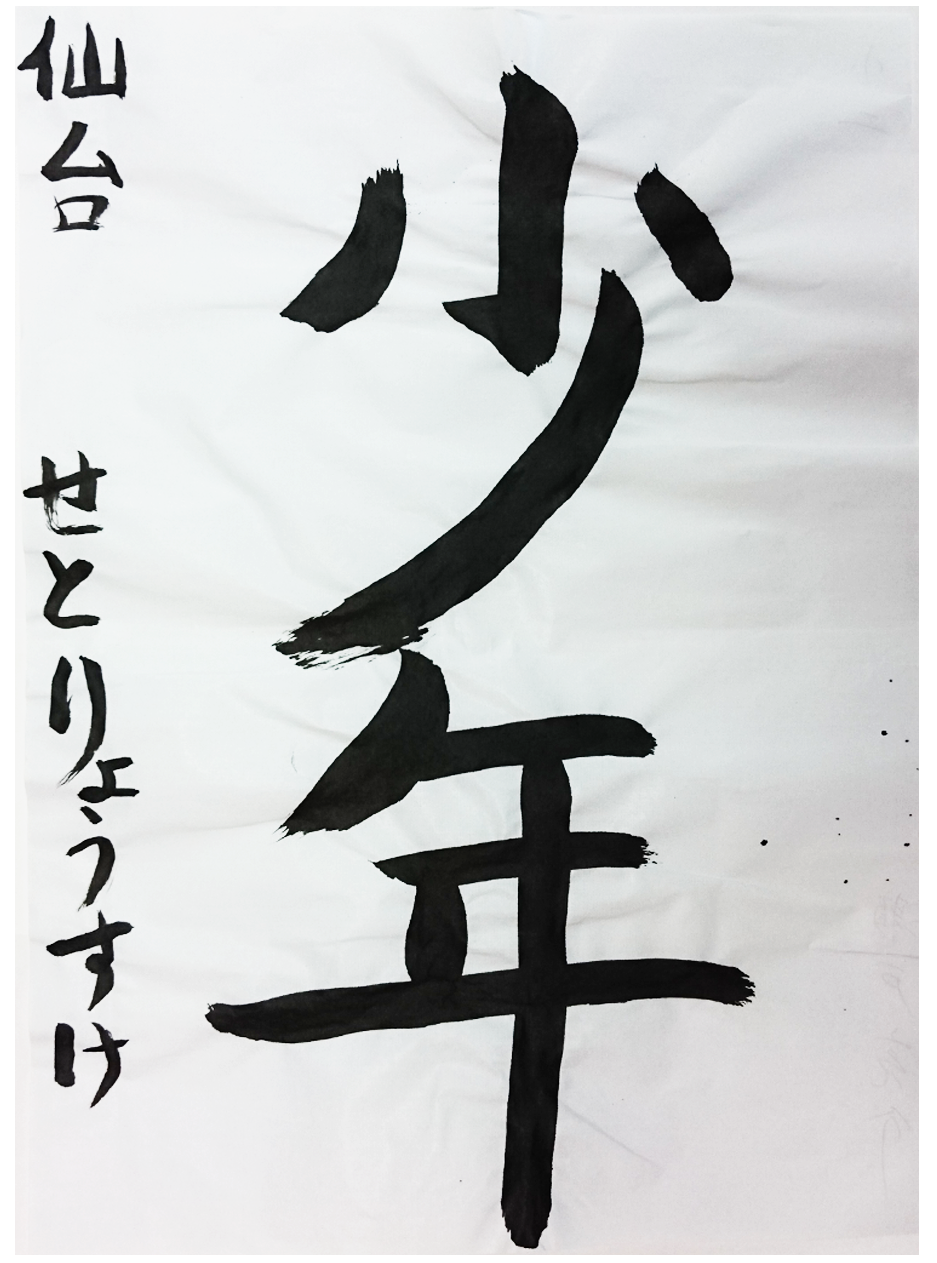 少年
仙台 せとりょうすけ